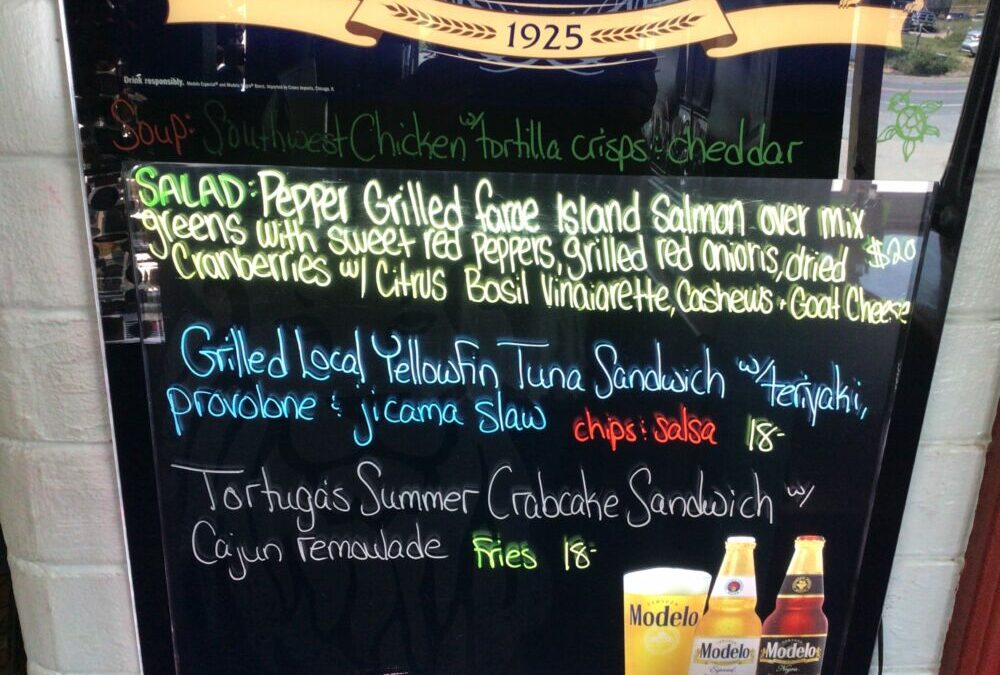 1925
Drink responsibly.
Soup: Southwest Chicken w/ tortilla crisps : cheddar
SALAD: Pepper Grilled faroe Island Salmon over mix
greens with sweet red peppers, grilled red onions, dried $20
Cranberries w/ Citrus Basil Vinaiarette, Cashews + Goat Cheese
Grilled Local Yellowfin Tuna Sandwich w/ teriyaki,
provolone & jicama slaw chips : salsa 18-
Tortuga's Summer Crabcake Sandwich w/
Cajun remoulade Fries 18-
Modelo
Modelo
Especial
Modelo
Negra